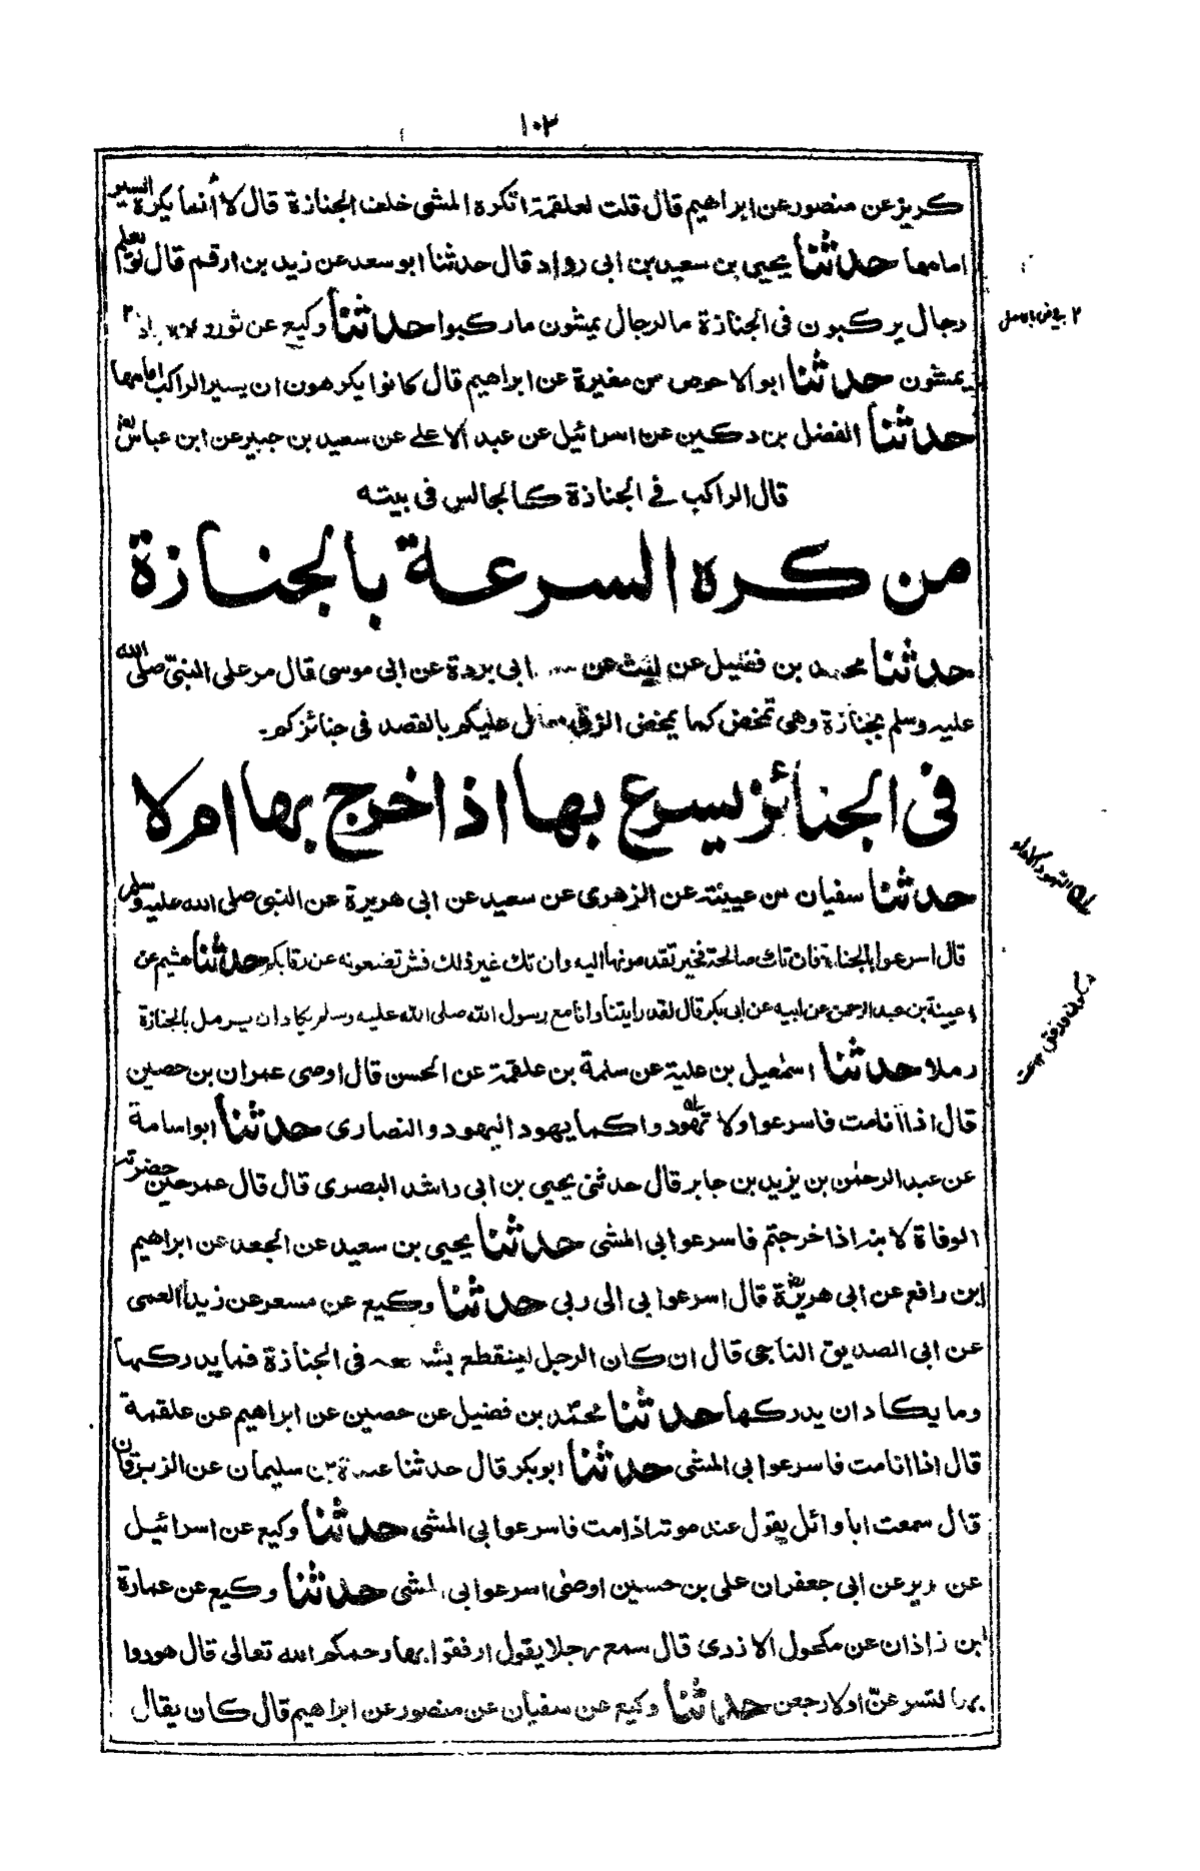 ١٠٣
كريز عن منصور عن ابراهيم قال قلت لعلقمة اتكره المشى خلف الجنازة قال لا انما يكره السير
امامها حدثنا يحيى بن سعيد بن ابى رواد قال حدثنا ابو سعد عن زيد بن ارقم قال لو يعلم
رجال يركبون فى الجنازة ما لرجال يمشون ما ركبوا حدثنا وكيع عن ثور و
يمشون حدثنا ابو الاحوص عن مغيرة عن ابراهيم قال كانوا يكرهون ان يسير الراكب امامها
حدثنا الفضل بن دكين عن اسرائيل عن عبد الاعلى عن سعيد بن جبير عن ابن عباس
قال الراكب فى الجنازة كالجالس فى بيته
من كره السرعة بالجنازة
حدثنا محمد بن فضيل عن ليث عن ابى بردة عن ابى موسى قال مر على النبى صلى الله
عليه وسلم بجنازة وهى تمخض كما يمخض الزق عليكم بالقصد فى جنائزكم
فى الجنائز يسرع بها اذا خرج بها ام لا
حدثنا سفيان بن عيينة عن الزهرى عن سعيد عن ابى هريرة عن النبى صلى الله عليه وسلم
قال اسرعوا بالجنازة فان تك صالحة فخير تقدمونها اليه وان تك غير ذلك فشر تضعونه عن رقابكم حدثنا هشيم عن
عيينة بن عبد الرحمن عن ابيه عن ابى بكر قال لقد رايتنا وانا مع رسول الله صلى الله عليه وسلم نكاد ان يرمل بالجنازة
رملا حدثنا اسمعيل بن علية عن سلمة بن علقمة عن الحسن قال اوصى عمران بن حصين
قال اذا انا مت فاسرعوا ولا تهودوا كما يهود اليهود والنصارى حدثنا ابو اسامة
عن عبد الرحمن بن يزيد بن جابر قال حدثنى يحيى بن ابى راشد البصرى قال قال عمر حين حضرته
الوفاة لابنه اذا خرجتم فاسرعوا بى المشى حدثنا يحيى بن سعيد عن الجعد عن ابراهيم
ابن رافع عن ابى هريرة قال اسرعوا بى الى ربى حدثنا وكيع عن مسعر عن زيد العمى
عن ابى الصديق الناجى قال ان كان الرجل لينقطع فى الجنازة فما يدركها
وما يكاد ان يدركها حدثنا محمد بن فضيل عن حصين عن ابراهيم عن علقمة
قال اذا انا مت فاسرعوا بى المشى حدثنا ابو بكر قال حدثنا عبدة بن سليمان عن الزبرقان
قال سمعت ابا وائل يقول عند موته اذا مت فاسرعوا بى المشى حدثنا وكيع عن اسرائيل
عن عن ابى جعفر ان على بن حسين اوصى اسرعوا بى المشى حدثنا وكيع عن عمارة
ابن زاذان عن مكحول الازدى قال سمع رجلا يقول ارفقوا بها رحمكم الله تعالى قال هودوا
بها لتسرعن او لارجعن حدثنا وكيع عن سفيان عن منصور عن ابراهيم قال كان يقال